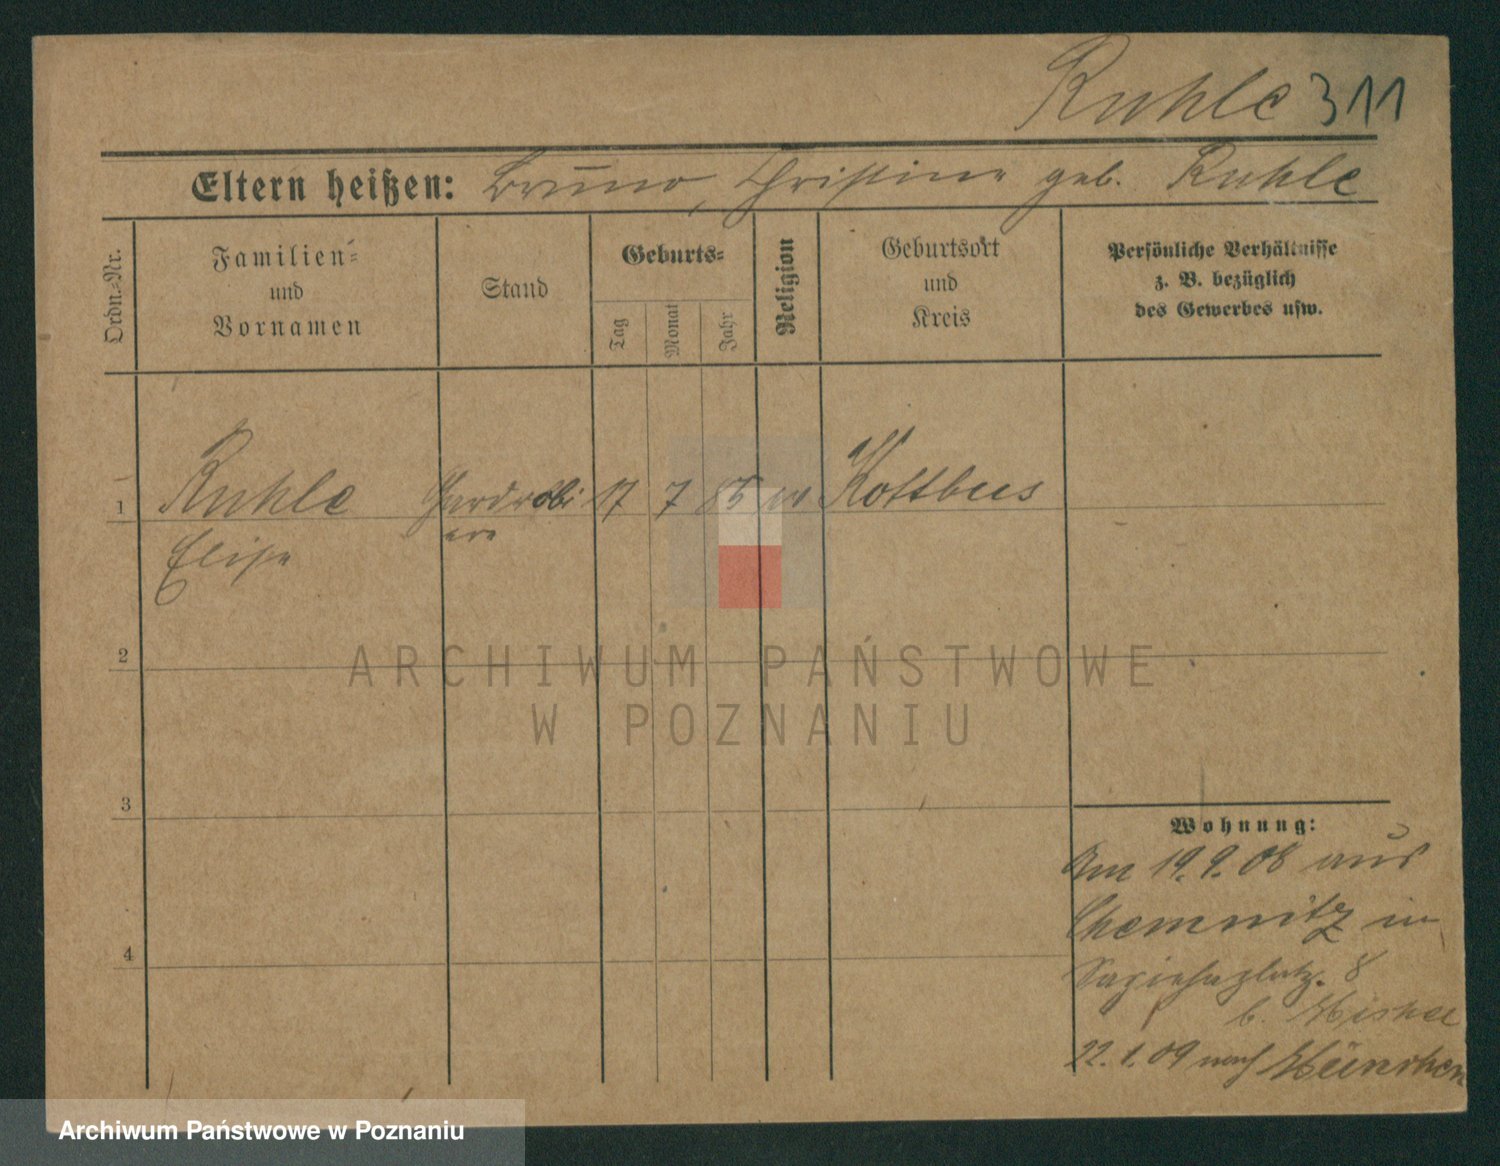 Ruhle 311
Eltern heißen: Bruno, Christine geb. Ruhle
Ordn.-Nr.
Familien-
und
Vornamen
Stand
Geburts-
Tag
Monat
Jahr
Religion
Geburtsort
und
Kreis
Persönliche Verhältnisse
z. B. bezüglich
des Gewerbes usw.
1 Ruhle Gardrobi 17 7 85 Kottbus
Elise ere
2
3
4
Wohnung:
Am 19.9.08 aus
Chemnitz in
Sapiehaplatz 8
b.
22.1.09 nach München
ARCHIWUM PAŃSTWOWE
W POZNANIU
Archiwum Państwowe w Poznaniu